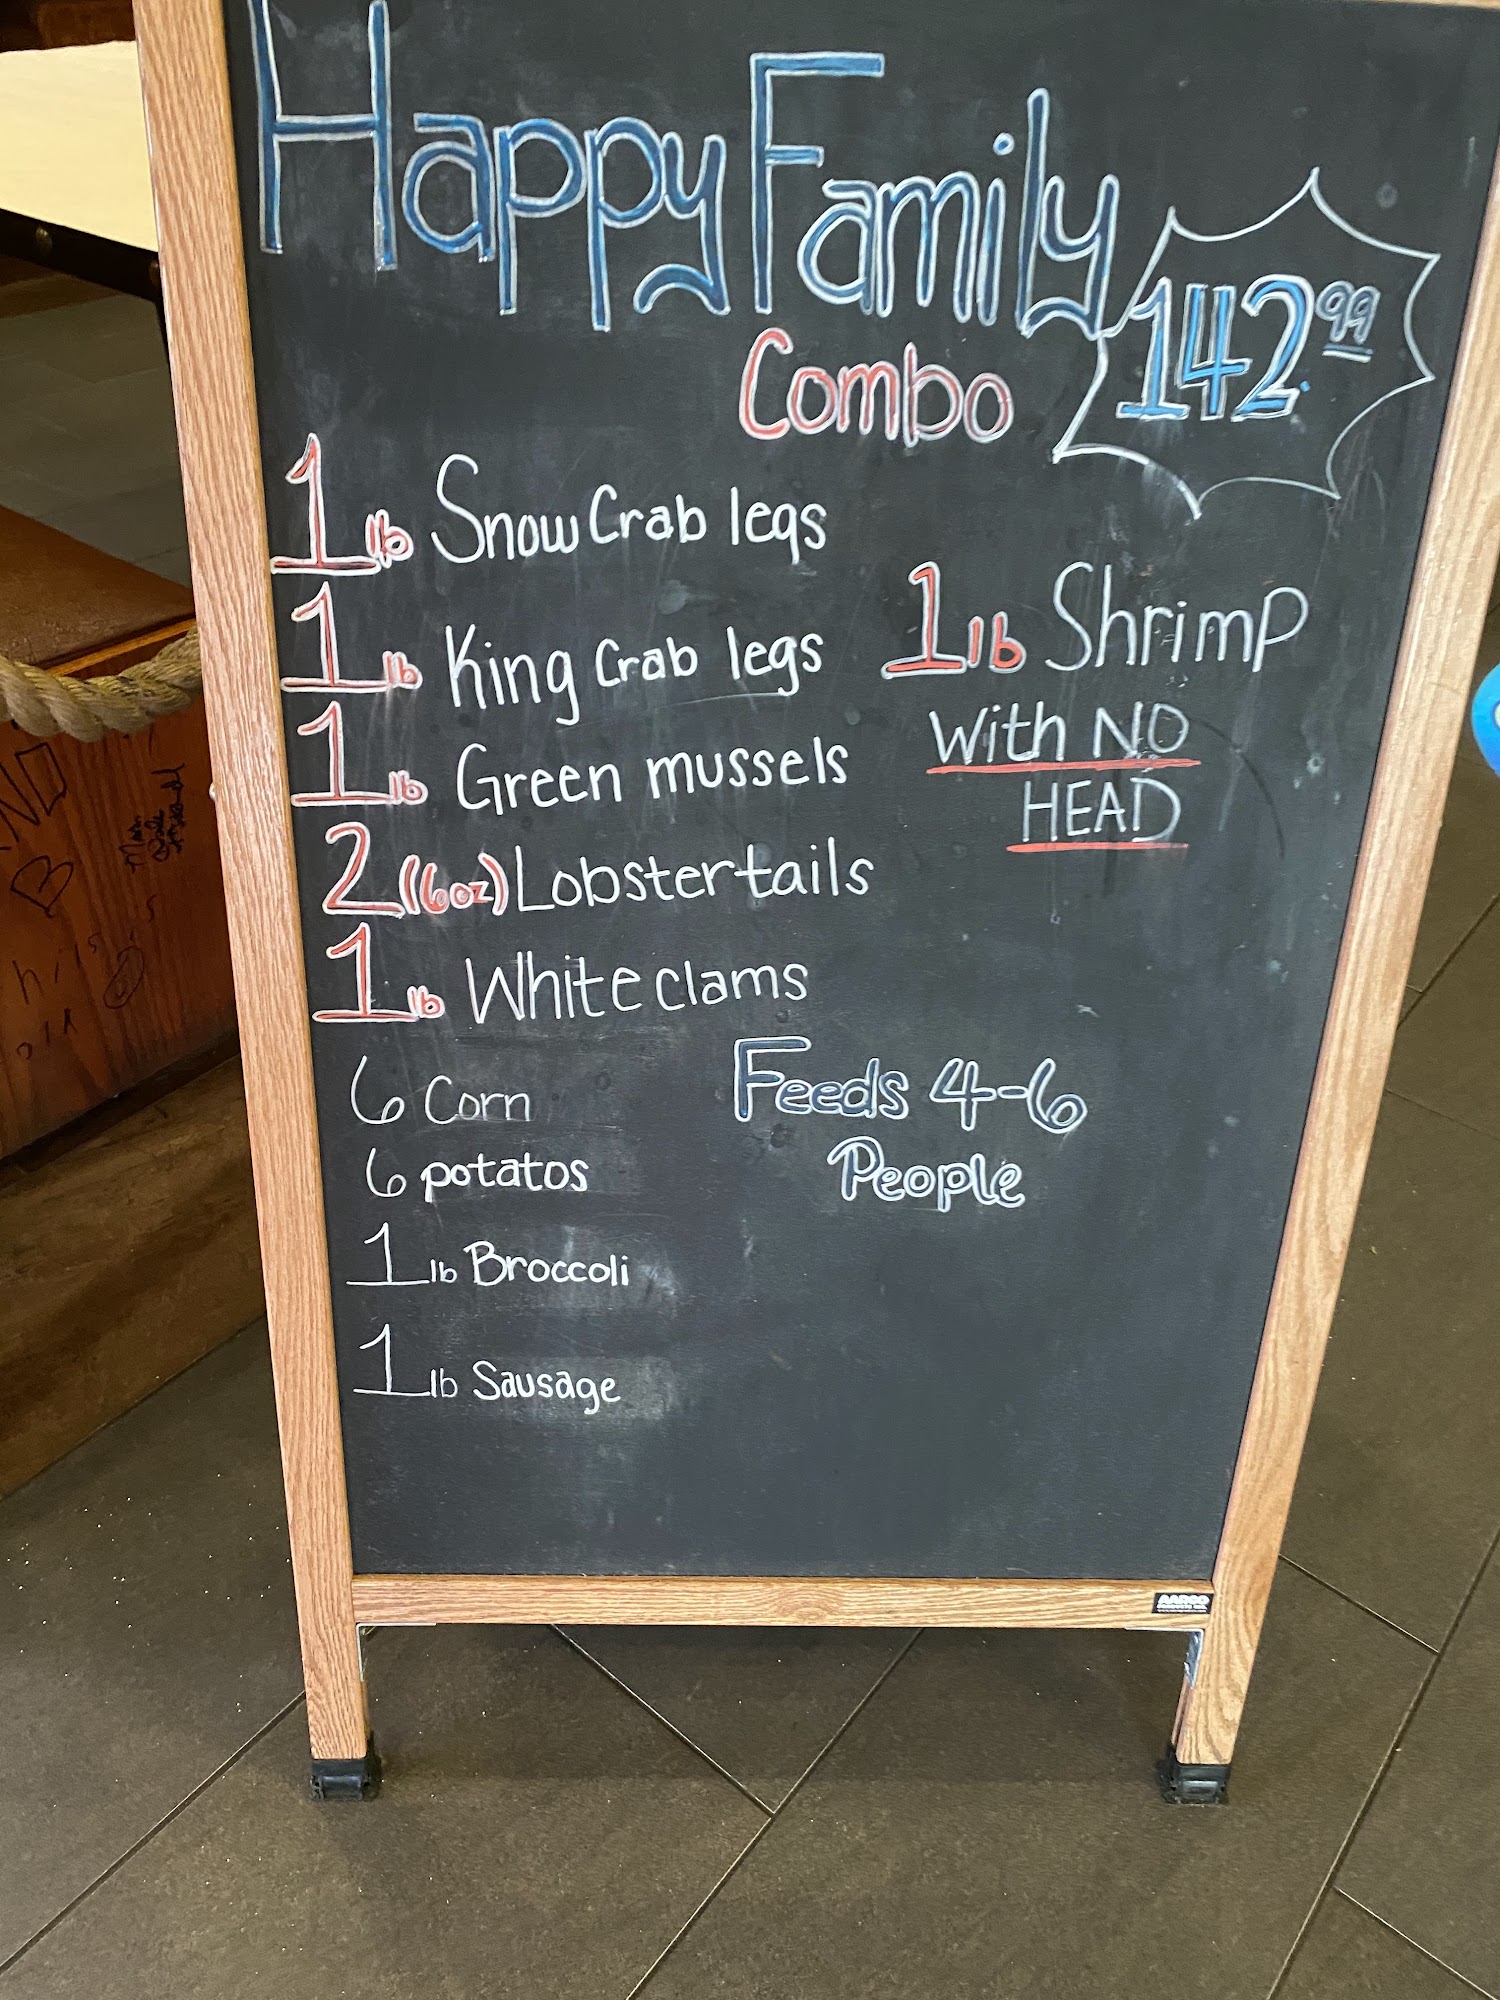 Happy Family
Combo
142.99
1 lb Snow Crab legs
1 lb King Crab legs
1 lb Green mussels
2 (6oz) Lobster tails
1 lb White clams
6 Corn
6 potatos
1 lb Broccoli
1 lb Sausage
1 lb Shrimp
With NO
HEAD
Feeds 4-6
People
AARCO